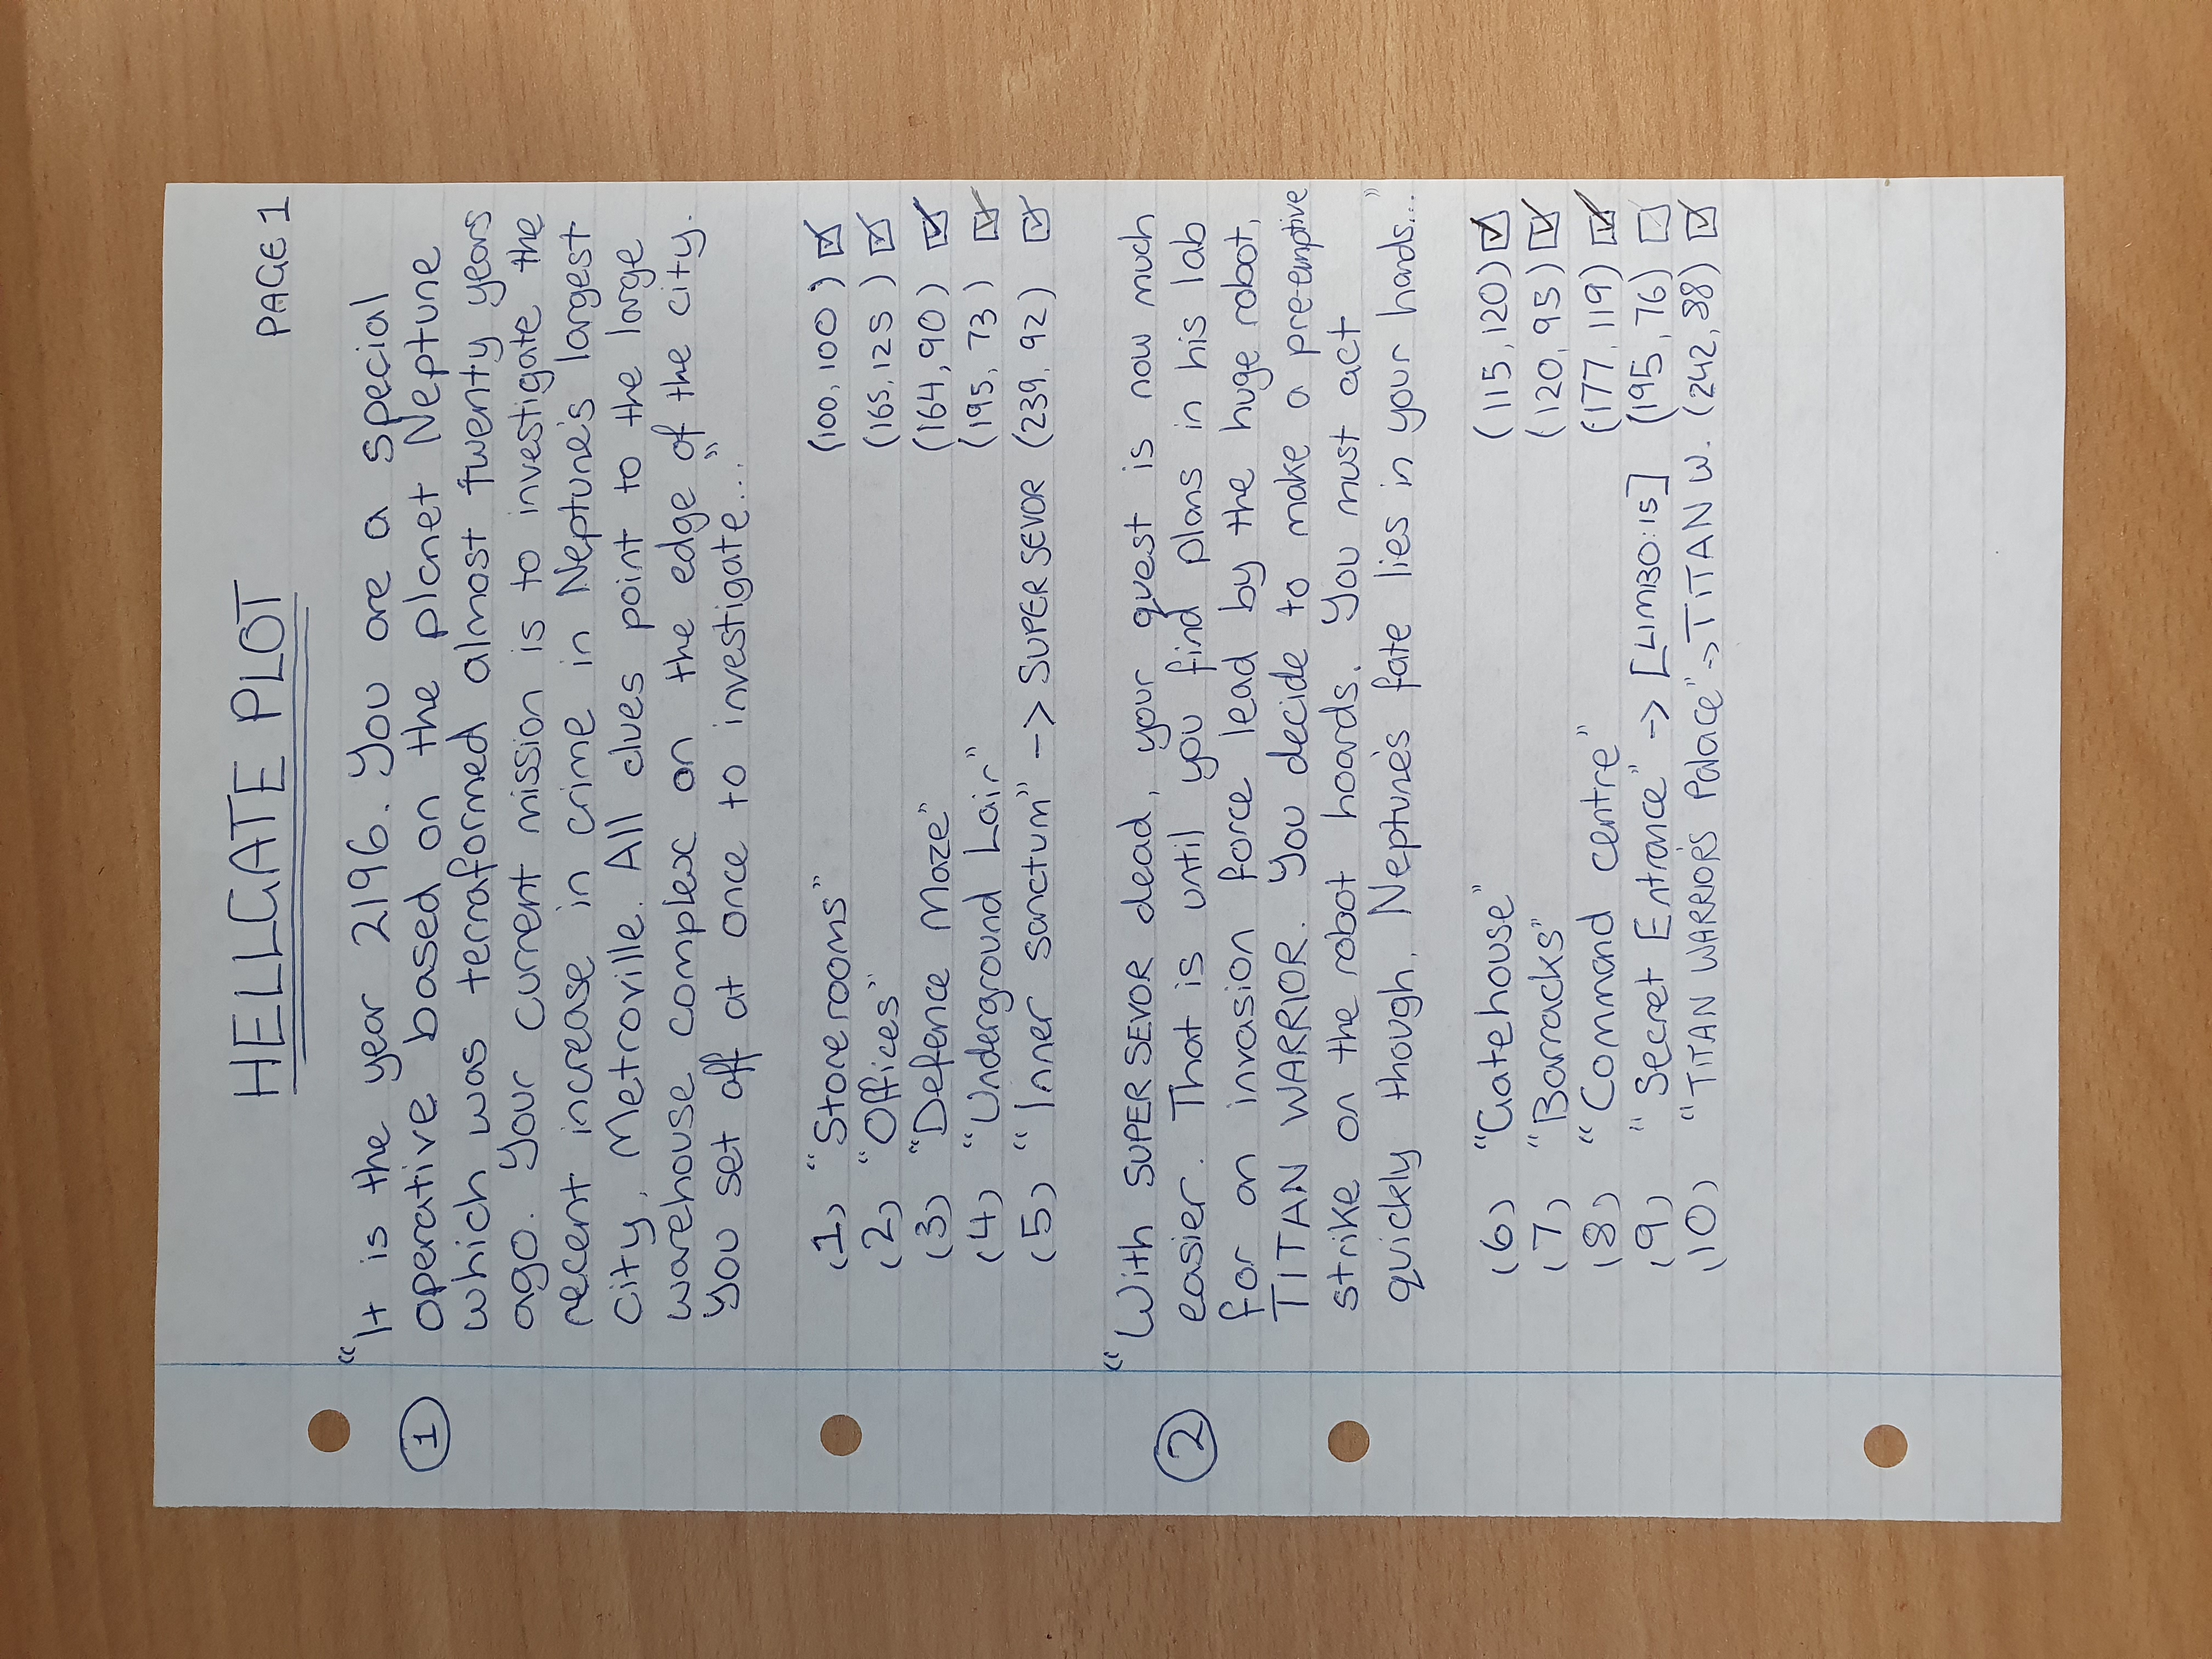 HELLGATE PLOT
PAGE 1
"It is the year 2196. You are a special
① operative based on the planet Neptune
which was terraformed almost twenty years
ago. Your current mission is to investigate the
recent increase in crime in Neptune's largest
city, Metroville. All clues point to the large
warehouse complex on the edge of the city.
You set off at once to investigate..."
(1) "Storerooms" (100, 100) ☑
(2) "Offices" (165, 125) ☑
(3) "Defence Maze" (164, 90) ☑
(4) "Underground Lair" (195, 73) ☑
(5) "Inner sanctum" -> SUPER SEVOR (239, 92) ☑
"With SUPER SEVOR dead, your quest is now much
② easier. That is until you find plans in his lab
for an invasion force lead by the huge robot,
TITAN WARRIOR. You decide to make a pre-emptive
strike on the robot hoards. You must act
quickly though, Neptune's fate lies in your hands..."
(6) "Gatehouse" (115, 120) ☑
(7) "Barracks" (120, 95) ☑
(8) "Command centre" (177, 119) ☑
(9) "Secret Entrance" -> [LIMBO:15] (195, 76) ☑
(10) "TITAN WARRIOR'S Palace" -> TITAN W. (242, 88) ☑